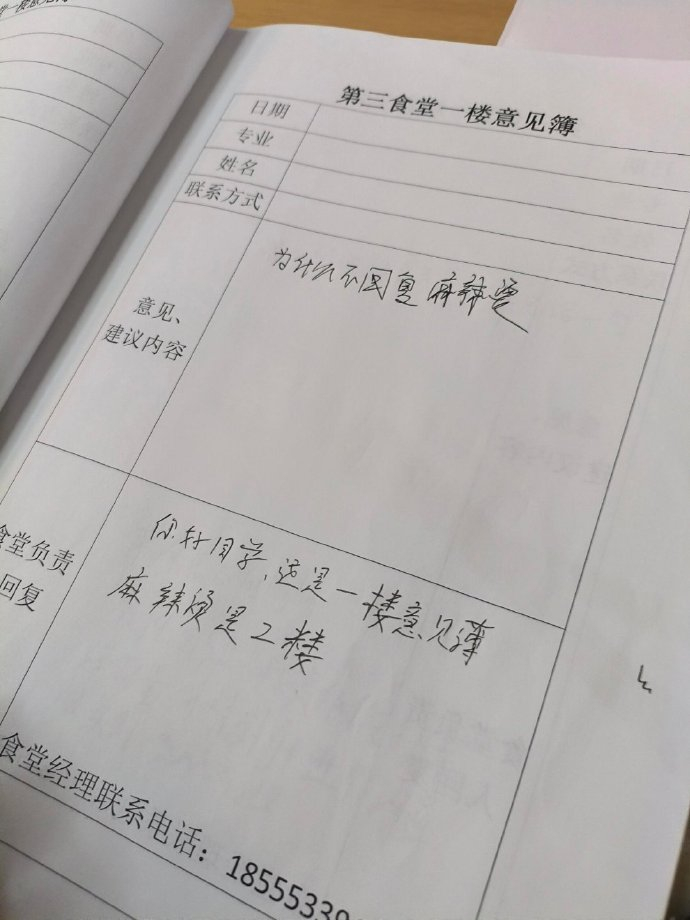 第三食堂一楼意见簿
日期
专业
姓名
联系方式
意见、
建议内容
为什么不回复麻辣烫
食堂负责
回复
你好同学,这是一楼意见簿
麻辣烫是2楼
食堂经理联系电话：1855533